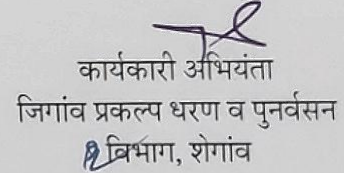 कार्यकारी अभियंता
जिगांव प्रकल्प धरण व पुनर्वसन
विभाग, शेगांव